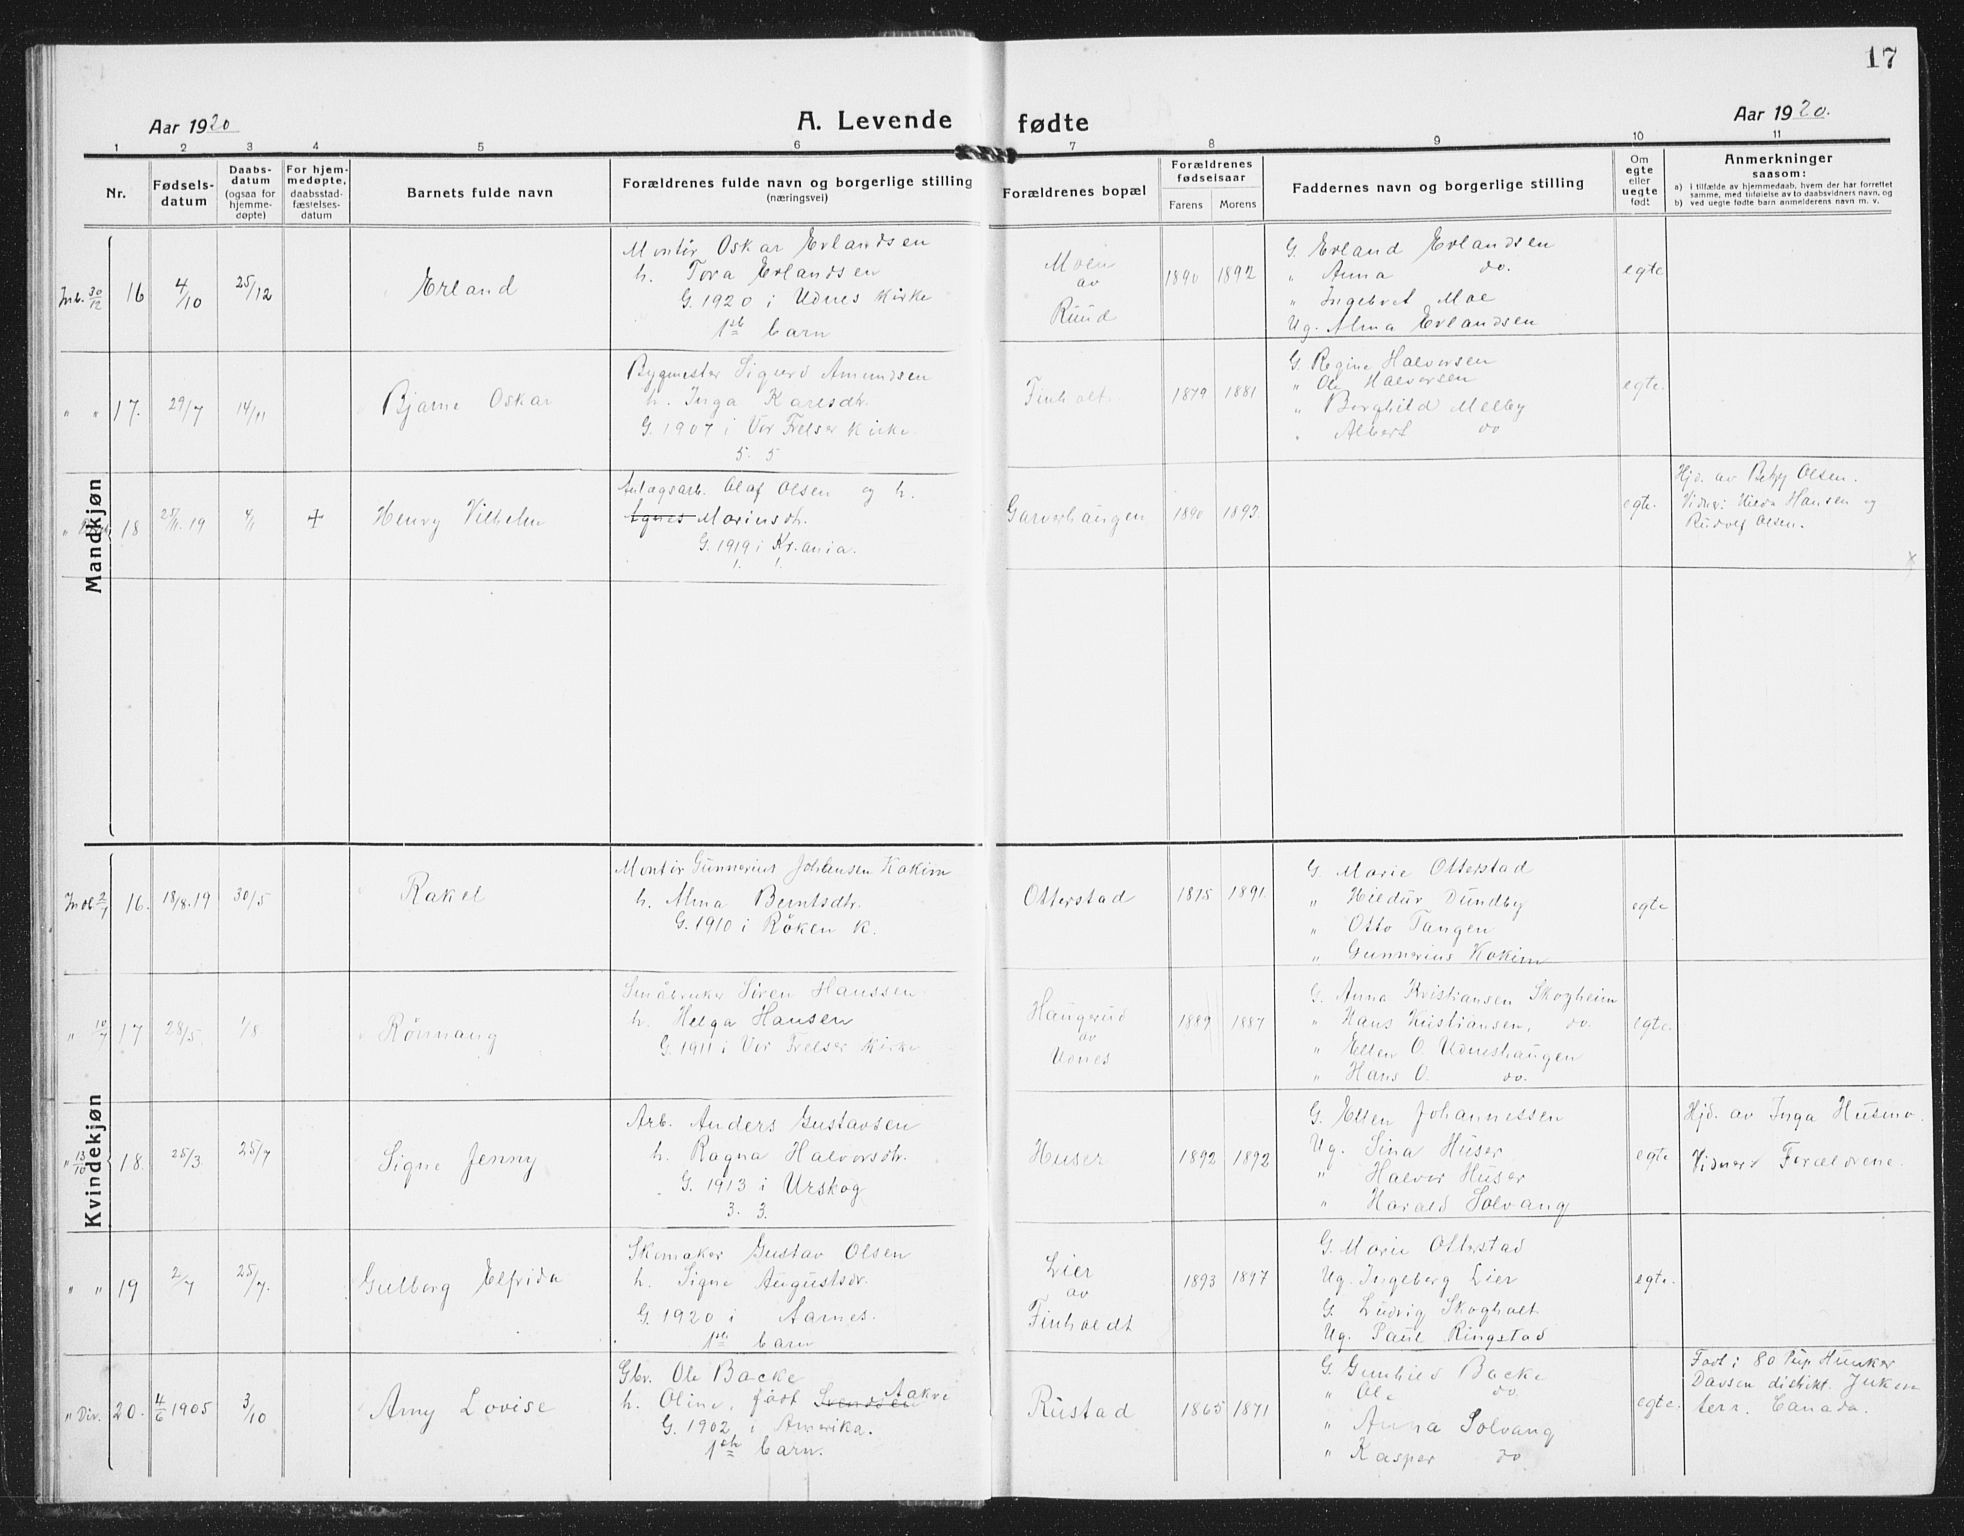 17
Aar 1920
A. Levende fødte
Aar 1920.
1 2 3 4 5 6 7 8 9 10 11
Nr.
Fødsels-
datum
Daabs-
datum
(ogsaa for
hjemme-
døpte)
For hjem-
medøpte,
daabsstad-
fæstelses-
datum
Barnets fulde navn
Forældrenes fulde navn og borgerlige stilling
(næringsvei)
Forældrenes bopæl
Forældrenes
fødselsaar
Farens Morens
Faddernes navn og borgerlige stilling
Om
egte
eller
uegte
født
Anmerkninger
saasom:
a) i tilfælde av hjemmedaab, hvem der har forrettet
samme, med tilføielse av to daabsvidners navn, og
b) ved uegte fødte barn anmelderens navn m. v.
Mandkjøn
Inb. 30/12 16 4/10 25/12 Erland
Montør Oskar Erlandsen
h. Tora Erlandsen
G. 1920 i Udnes Kirke
1ste barn
Moen
av
Ruud
1890 1892
G. Erland Erlandsen
" Anna do.
" Ingebret Moe
Ug. Alma Erlandsen
egte
" " 17. 29/7 14/11 Bjarne Oskar
Bygmester Sigurd Amundsen
h. Inga Karlsdtr.
G. 1907 i Vor Frelser Kirke
5. 5
Finholt
1879 1881
G. Regine Halvorsen
" Ole Halvorsen
" Borghild Melby
" Albert do
egte.
" 18 25/11.19 4/1 + Henry Vilhelm
Anlægsarb. Olaf Olsen og h.
Agnes Mariusdtr.
G. 1919 i Kr.ania.
1. 1.
Garverhaugen
1890 1893
egte.
Hjd. av Olsen.
Vidner: Hilda Hansen og
Rudolf Olsen.
Kvindekjøn
2/1 16. 18/8.19 30/5 Rakel
Montør Gunnerius Johansen Kokim
h. Alma Berntsdtr.
G. 1910 i Røken K.
Otterstad
1875 1891
G. Marie Otterstad
" Hildur Dundby
" Otto Tangen
" Gunnerius Kokim
egte
" 10/7 17 28/5. 1/8 Rönnaug
Småbruker Søren Hanssen
h. Helga Hansen
G. 1911 i Vor Frelser Kirke
Haugerud
av
Udnes
1889 1887
G. Anna Kristiansen Skogheim
" Hans Kristiansen, do.
" Ellen O. Udneshaugen
" Hans O. do.
egte.
" 13/10 18. 25/3. 25/7 Signe Jenny
Arb. Anders Gustavsen
h. Ragna Halvorsdtr.
G. 1913 i Urskog
3. 3.
Huser
1892 1892
G. Ellen Johannessen
Ug. Sina Huser
" Halvor Huser
" Harald Solvang
egte
Hjd. av Inga Husmo.
Vidner: Forældrene.
" " 19 2/7 25/7. Gulborg Elfrida
Skomaker Gustav Olsen
h. Signe Augustsdr.
G. 1920 i Aarnes.
1ste barn
Lier
av
Finholdt
1893 1897
G. Marie Otterstad
Ug. Ingeborg Lier
G. Ludvig Skogholt
Ug. Paul Ringstad
egte.
" Div. 20. 4/6 1905 3/10 Amy Lovise
Gbr. Ole Backe
h. Oline, født Svendsen Aakre
G. 1902 i Amerika.
1ste barn.
Rustad
1865 1871
G. Gunhild Backe
" Ole do.
" Anna Solvang
" Kasper do
egte.
Født i 80 Pup Hunker
Davsen distrikt. Jukon
terr. Canada.